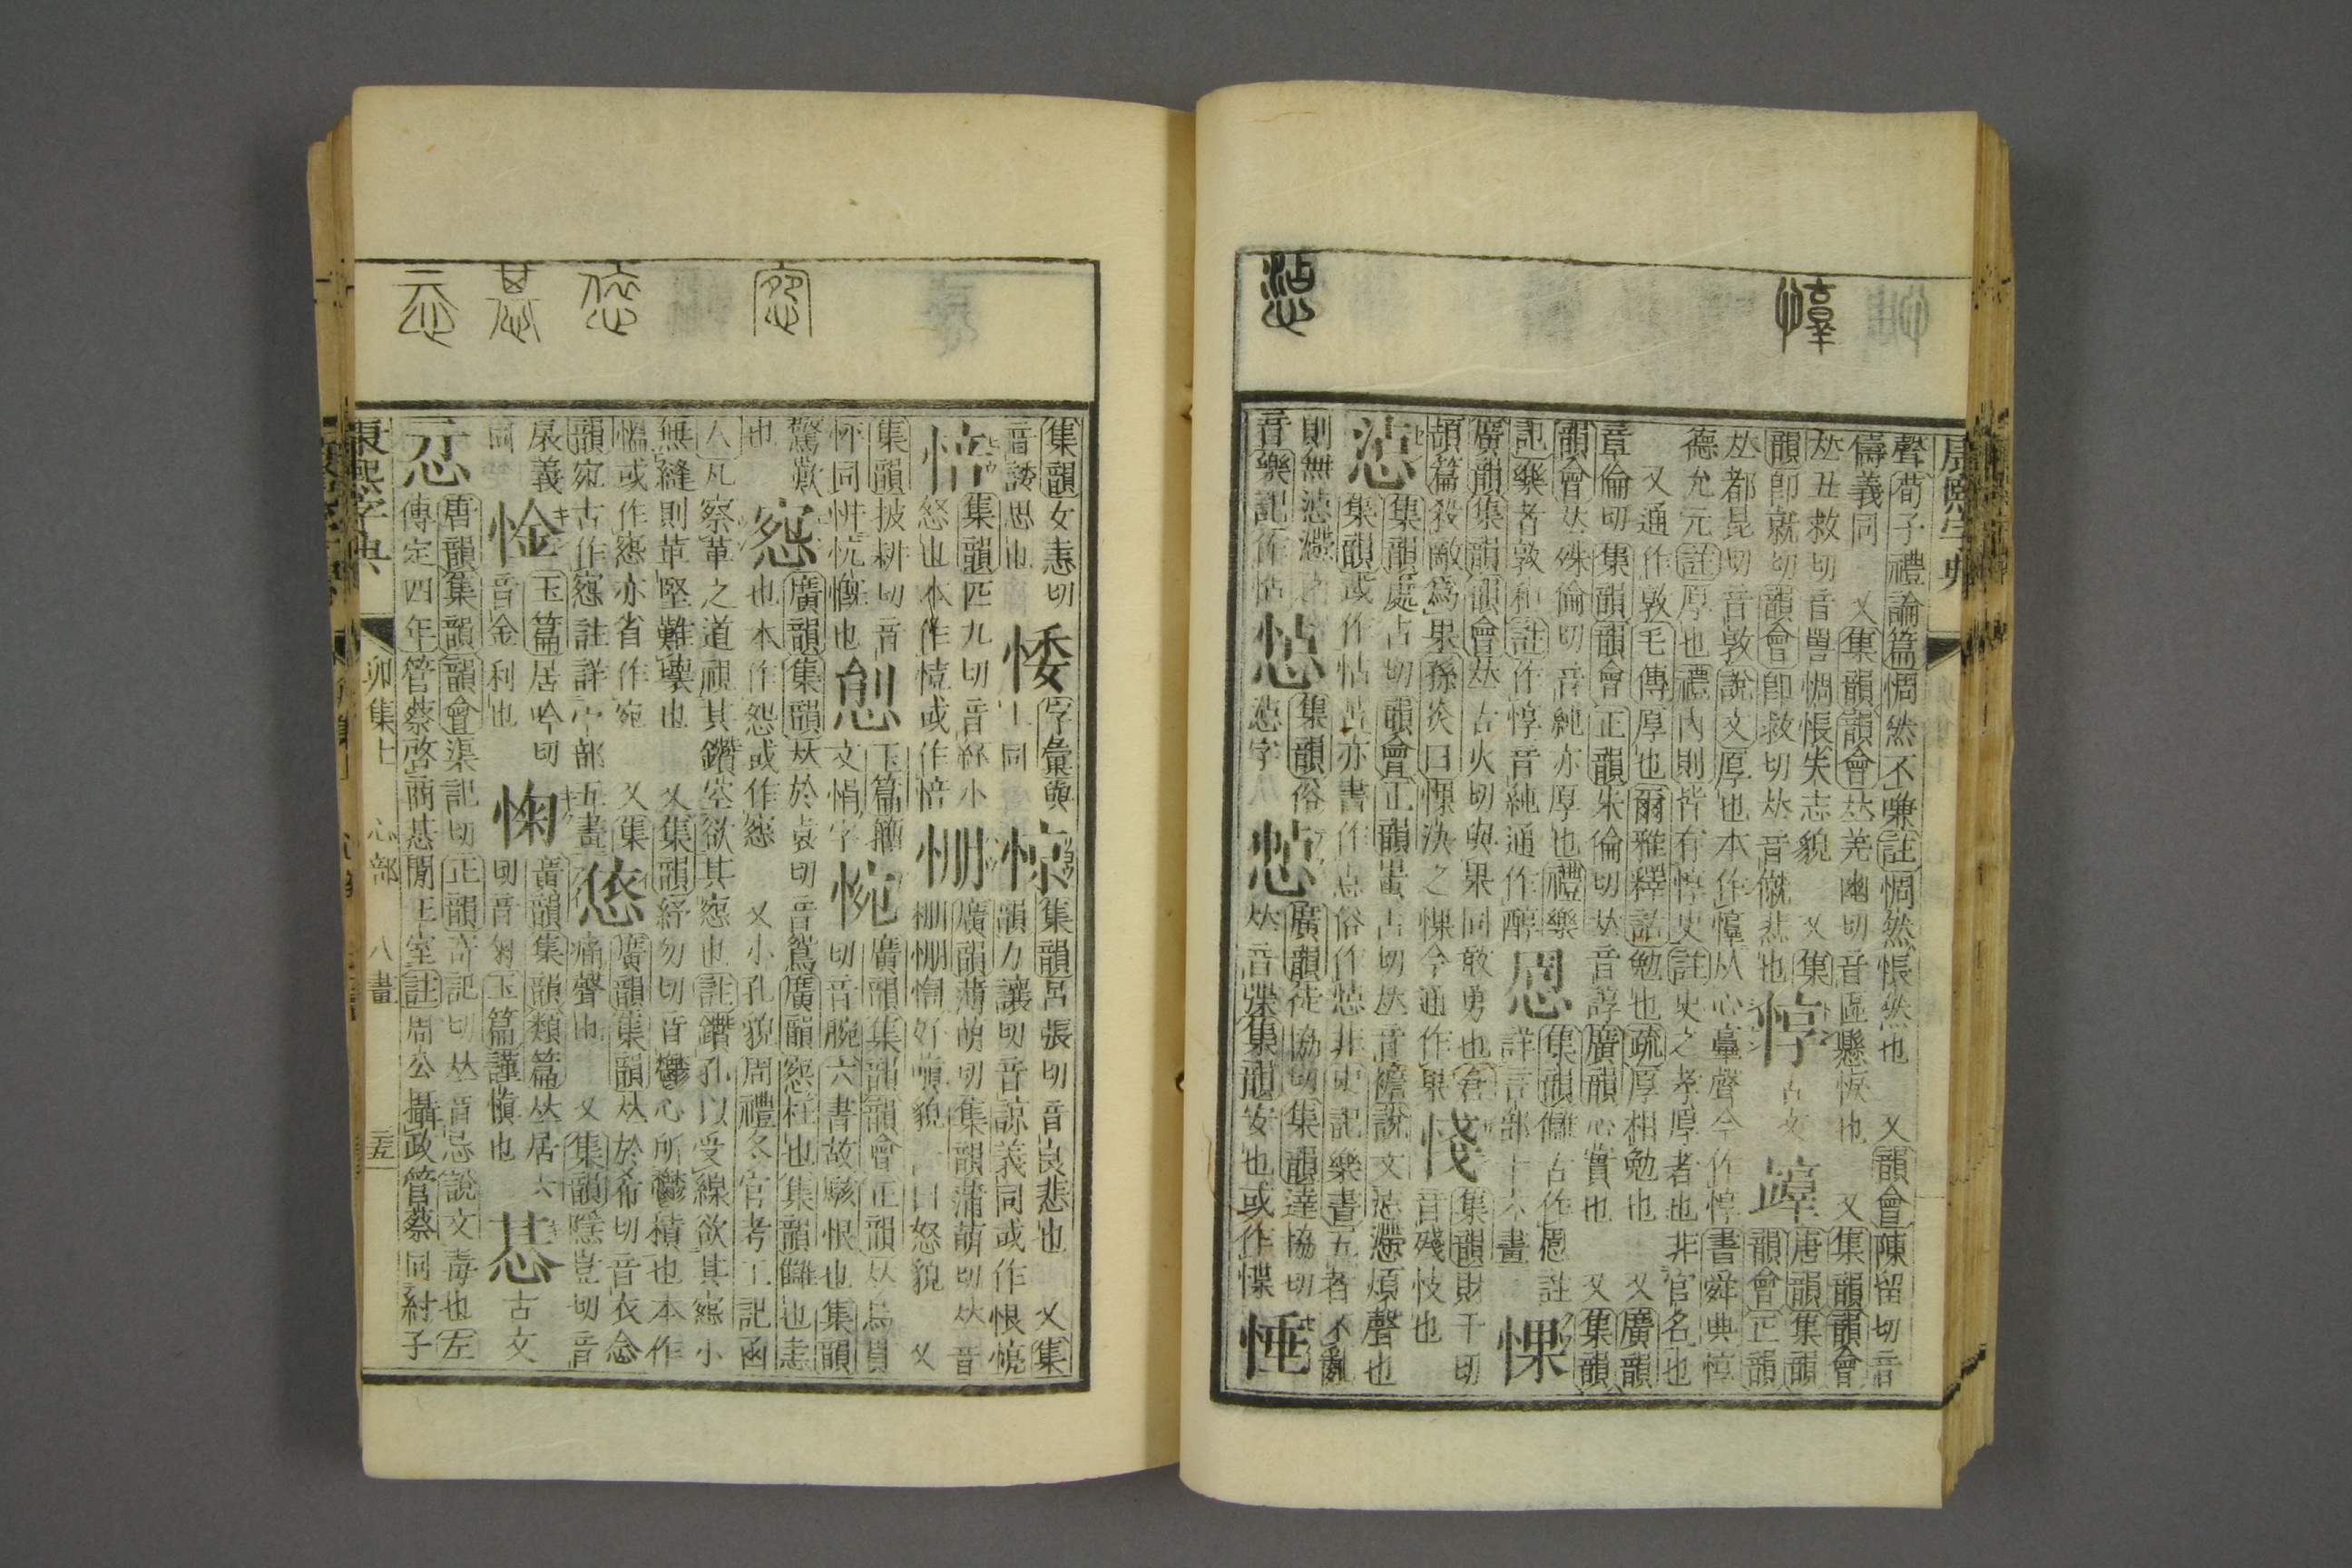 康熙字典
聲荀子禮論篇惆然不嗛註惆然悵然也 又韻會陳留切音
儔義同 又集韻韻會𠀤羌幽切音區懸悷也 又集韻韻會
𠀤丑救切音畜惆悵失志貌 又集
韻卽就切韻會卽救切𠀤音僦悲也
惇 古文 唐韻集韻韻會正韻
𠀤都昆切音敦說文厚也本作惇从心𦎫聲今作惇書舜典惇
德允元註厚也禮內則皆有惇史註史之孝厚者也非官名也
又通作敦毛傳厚也爾雅釋詁勉也疏厚相勉也 又廣韻
章倫切集韻韻會正韻朱倫切𠀤音諄廣韻心實也 又集韻
韻會𠀤殊倫切音純亦厚也禮樂
記樂者敦和註作惇音純通作醇
集韻讎古作 註
詳言部十六畫
惈
廣韻集韻韻會𠀤古火切與果同敢勇也倉
頡篇殺敵爲果孫炎曰惈決之惈今通作果
集韻財干切
音殘忮也
惉
集韻處占切韻會正韻蚩占切𠀤音襜說文惉懘煩聲也
集韻或作怗 亦書作 俗作惉非史記樂書五者不亂
則無惉懘之
音樂記作怗
集韻俗
惉字
廣韻徒協切集韻達協切
𠀤音牒集韻安也或作惵
集韻女恚切
音諉思也
字彙與
上同
惊
集韻呂張切音良悲也 又集
韻力讓切音諒義同或作悢
集韻匹九切音紑小
怒也本作 或作
廣韻薄萌切集韻蒲萌切𠀤音
棚 好嗔貌一曰怒貌 又
集韻披耕切音
怦同恲忼慨也
玉篇籀
文悁字
惋
廣韻集韻韻會正韻𠀤烏貫
切音腕六書故駭恨也集韻
驚歎
也
惌
廣韻集韻𠀤於袁切音鴛廣韻惌枉也集韻讎也恚
也本作怨或作惌 又小孔貌周禮冬官考工記函
人凡察革之道視其鑽空欲其惌也註鑽孔以受線欲其惌小
無縫則革堅難壞也 又集韻紆勿切音鬱心所鬱積也本作
慍或作惌亦省作宛 又集
韻宛古作惌註詳宀部五畫
㥋
廣韻集韻𠀤於希切音衣念
痛聲也 又集韻隱豈切音
扆義
同
惍
玉篇居吟切
音金利也
廣韻集韻類篇𠀤居六
切音匊玉篇謹愼也
惎 古文
唐韻集韻韻會渠記切正韻奇記切𠀤音忌說文毒也左
傳定四年管蔡啓商惎閒王室註周公攝政管蔡同紂子
康熙字典 卯集上 心部 八畫 三五